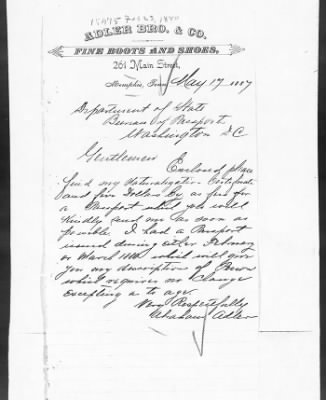 ADLER BRO. & CO.
FINE BOOTS AND SHOES,
261 Main Street,
Memphis, Tenn May 17 1887
Department of State
Bureau of Passport
Washington DC
Gentlemen
Enclosed please
find my Naturalization Certificate
and five Dollars as fee for
a Passport which you will
Kindly send me as soon as
possible. I had a Passport
issued during either February
or March which will give
you my description of Person
which requires no change
excepting as to age.
Very Respectfully
Abraham Adler